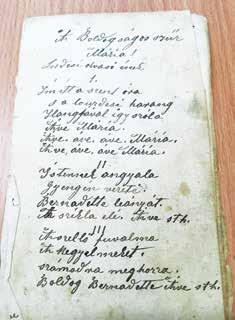 A Boldogságos szűz
Mária!
Lurdesi olvasó ének.
1.
Im itt a szent óra
s a lourdesi harang
Hangjával így szóla
Ave Mária.
Ave, áve, ave, Mária,
Ave, áve, ave Mária.
II
Istennek angyala
Gyengén vezeté
Bernadette leányát.
A szikla elé. Ave stb.
III
A szellő fuvalma
A kegyelmeket.
számodra meghozza.
Boldog Bernadette Ave stb.